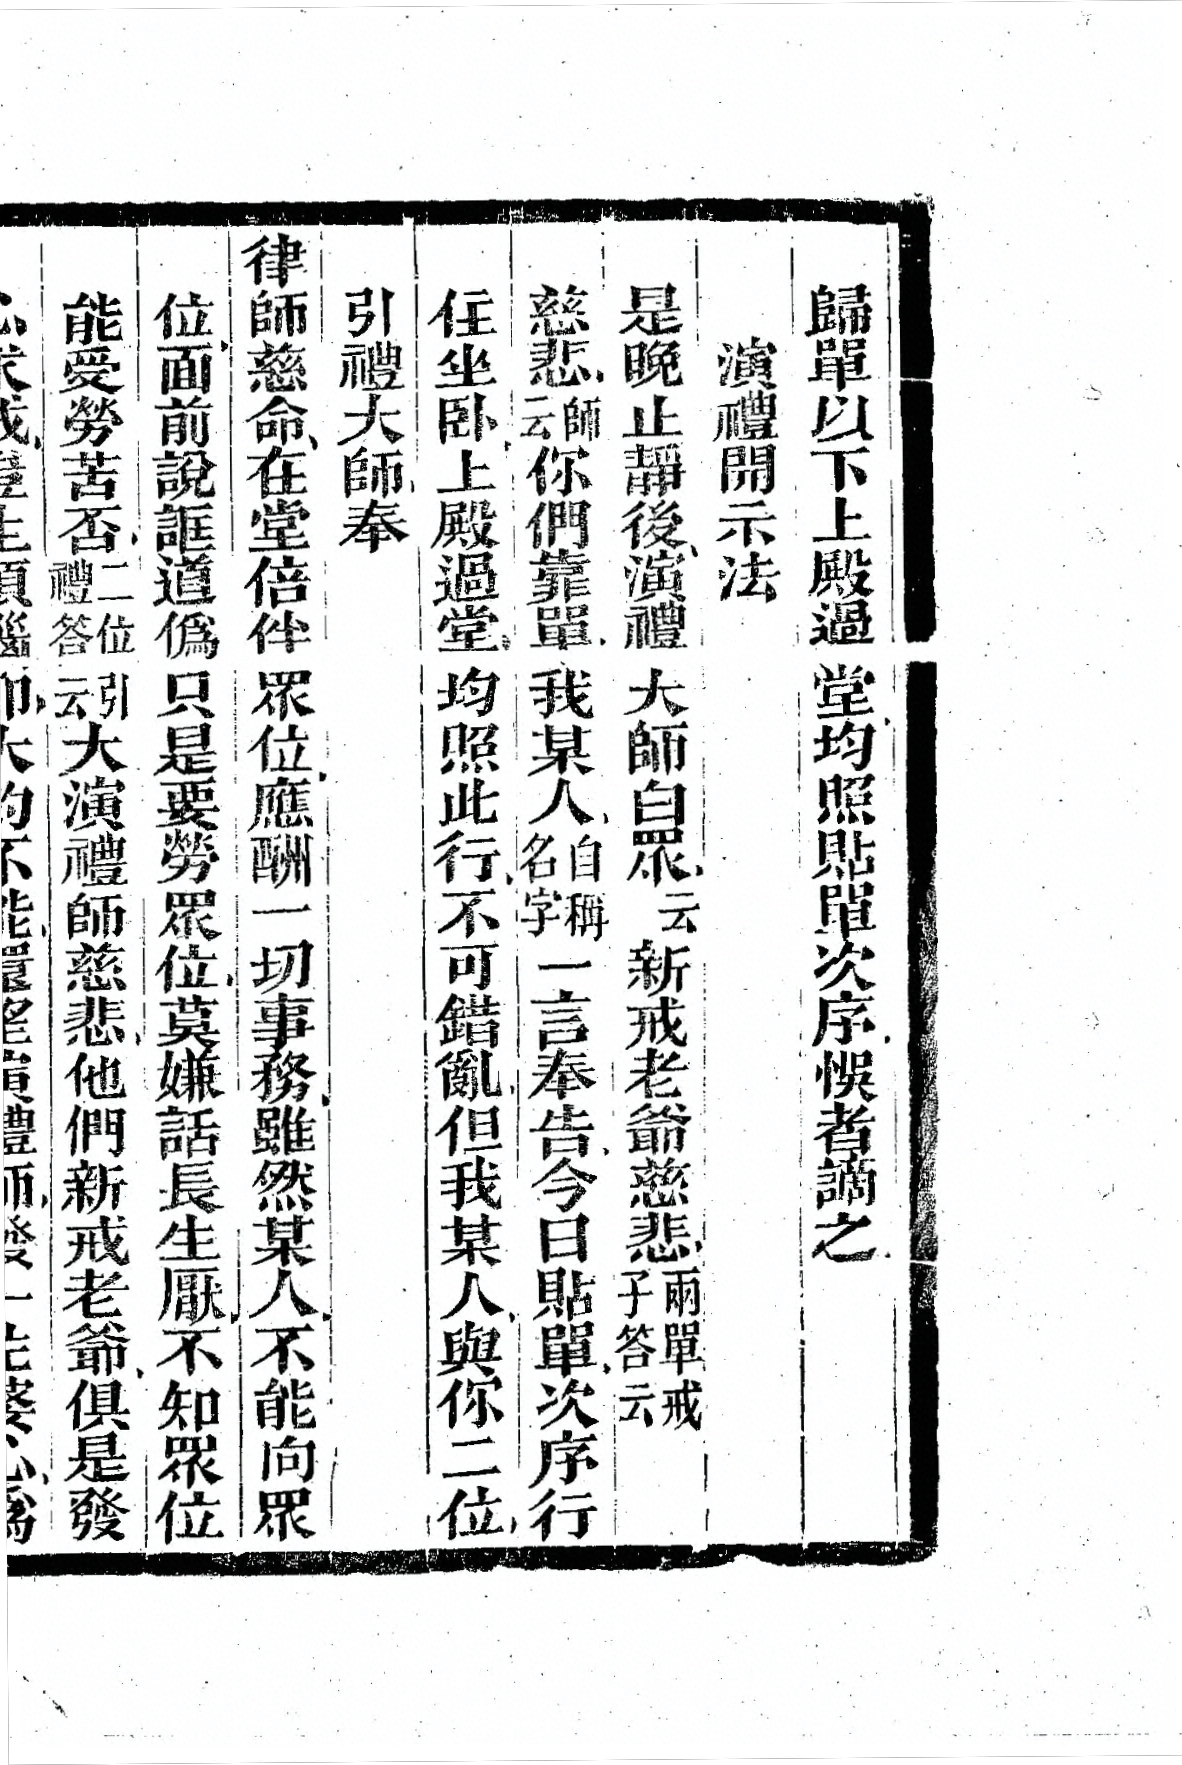 歸單以下上殿過堂均照貼單次序悞者謫之
演禮開示法
是晚止靜後演禮大師白眾云新戒老爺慈悲兩單戒子答云
慈悲師云你們靠單我某人自稱名字一言奉告今日貼單次序行
住坐卧上殿過堂均照此行不可錯亂但我某人與你二位
引禮大師奉
律師慈命在堂倍伴眾位應酬一切事務雖然某人不能向眾
位面前說誑道僞只是要勞眾位莫嫌話長生厭不知眾位
能受勞苦否二位引禮答云大演禮師慈悲他們新戒老爺俱是發
心求戒豈生煩惱師大約不能還望演禮師發一片婆心爲